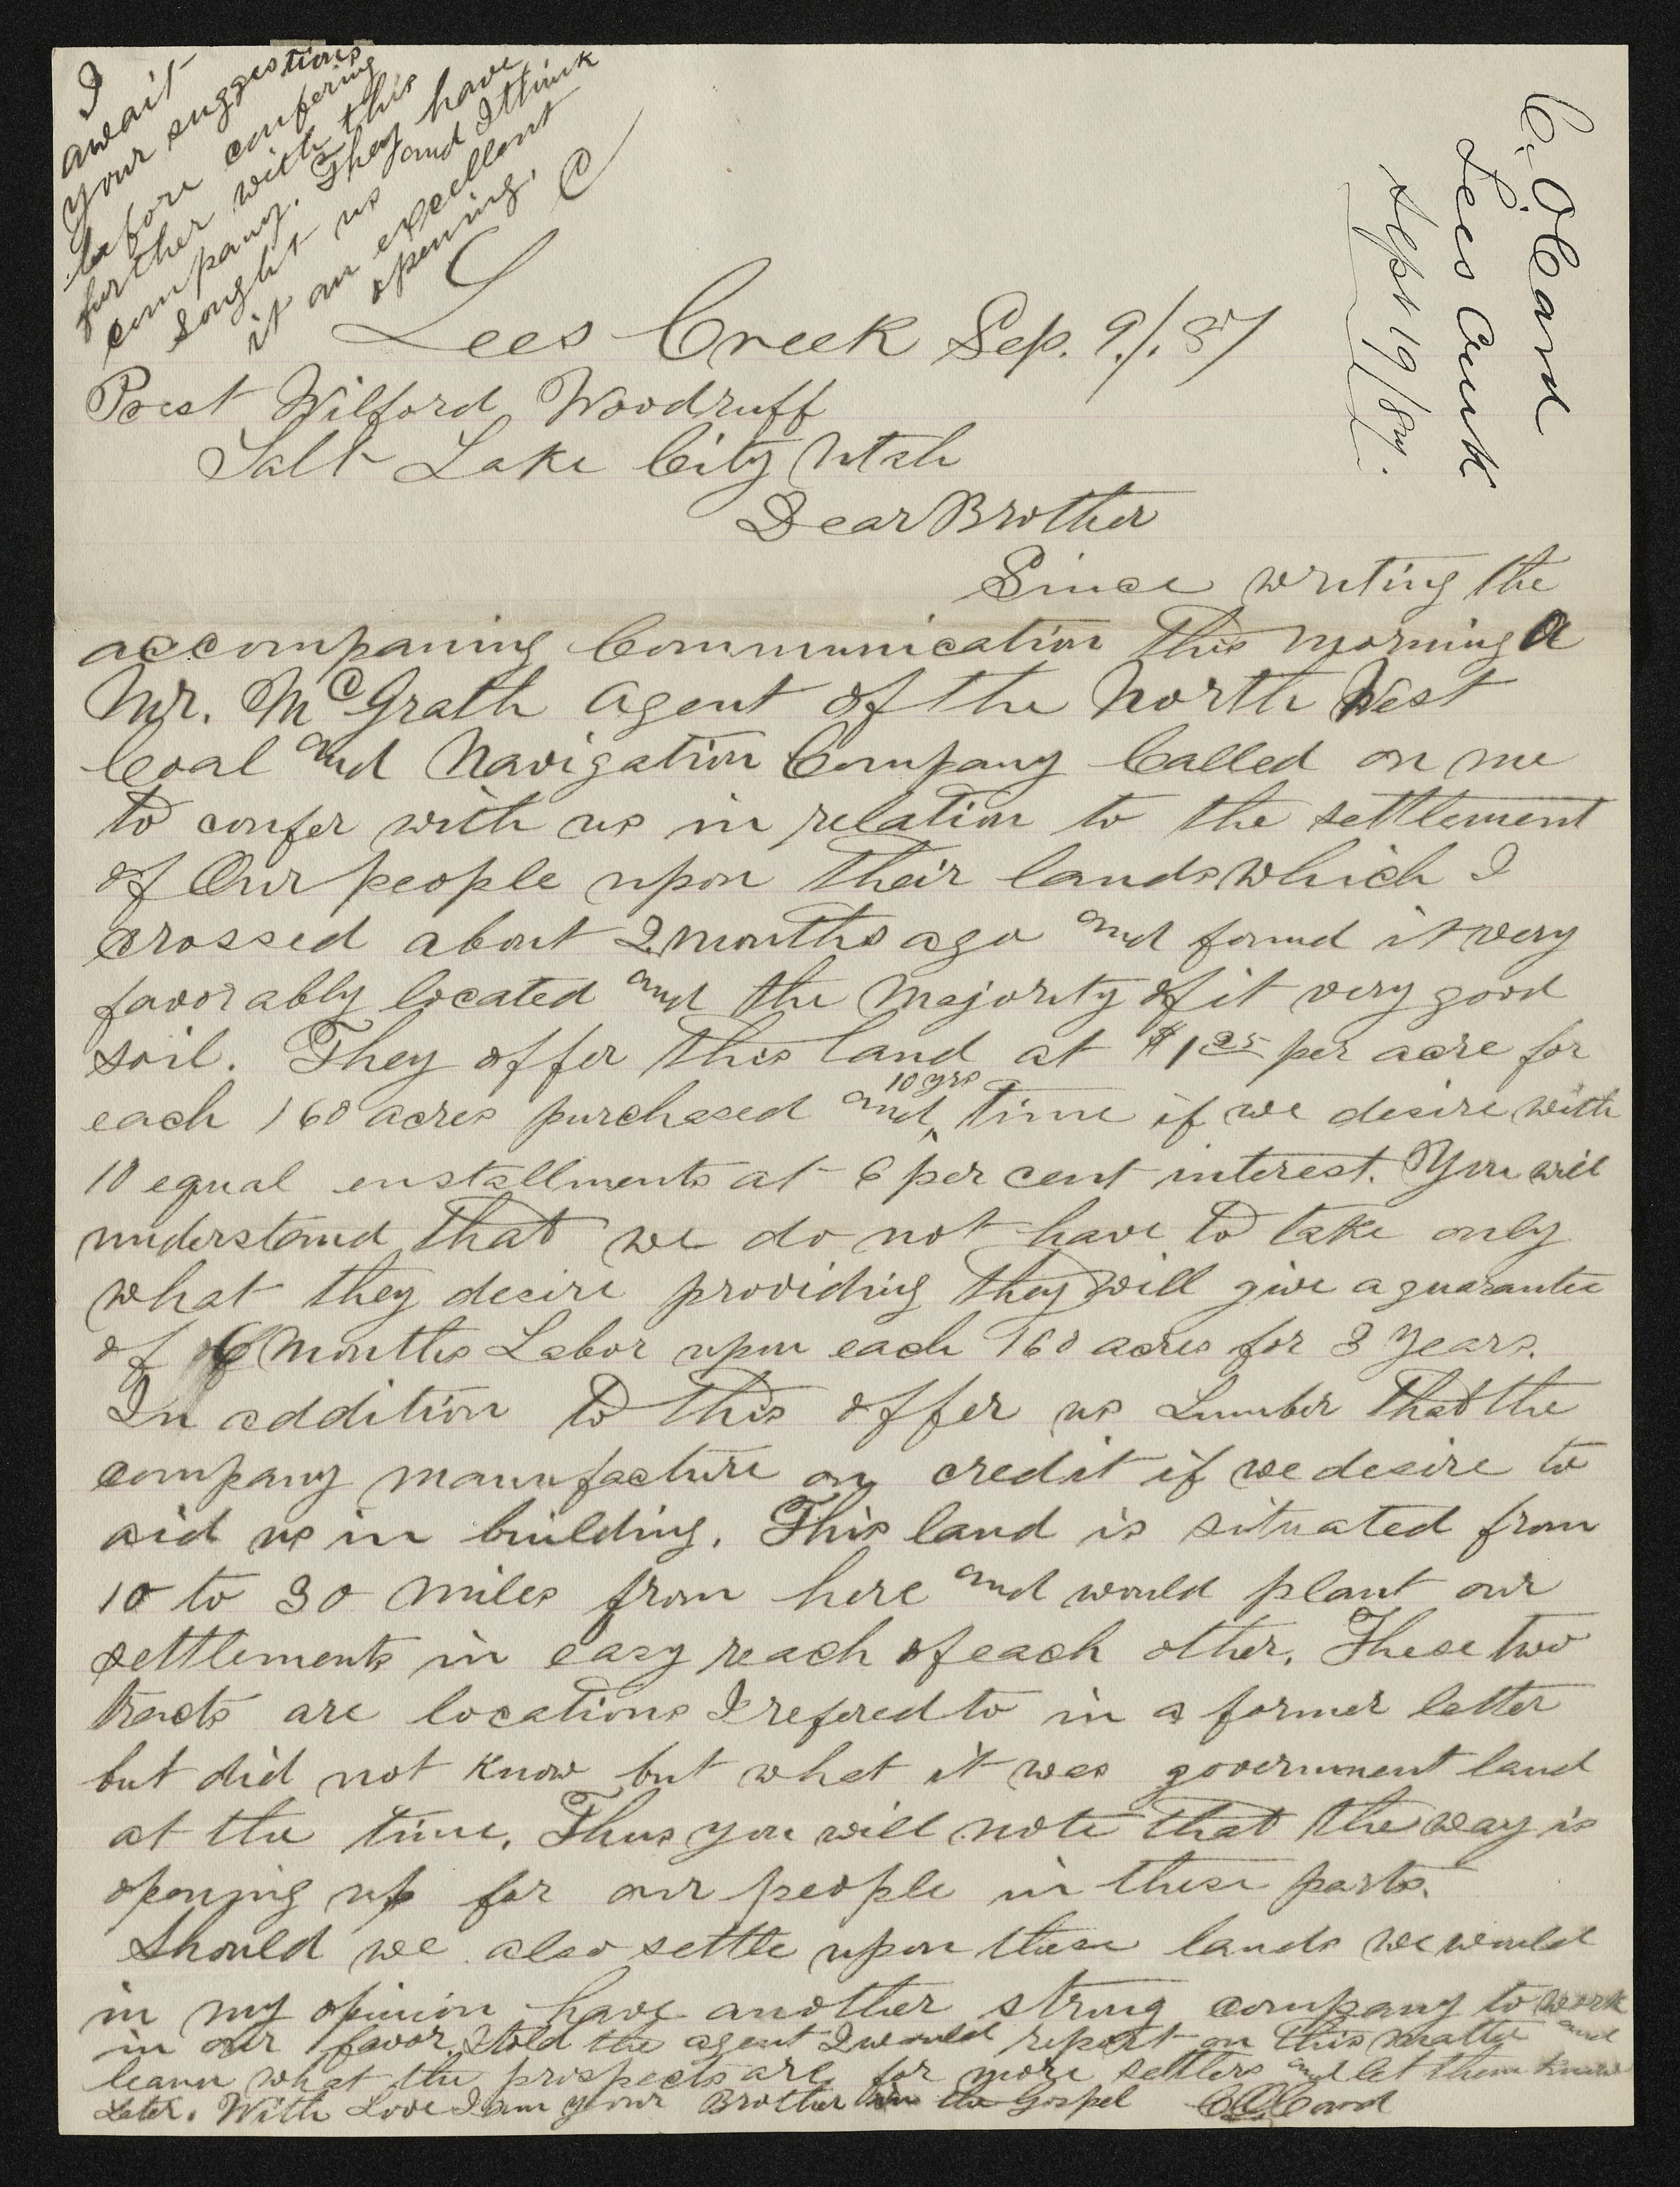 I
await
your suggestions
before confering
further with this
company. They have
sought us and I think
it an excellent
opening.
C
C. O. Card
Lees Creek
Sept 19/87.
Lees Creek Sep. 9/. 87
Prest Wilford Woodruff
Salt Lake City Utah
Dear Brother
Since writing the
accompaning Communication this morning a
Mr. McGrath agent of the North West
Coal and Navigation Company Called on me
to confer with us in relation to the settlement
of Our people upon their lands which I
crossed about 2 months ago and found it very
favorably located and the majority of it very good
soil. They offer this land at $1 25 per acre for
each 160 acres purchased and 10 yrs time if we desire with
10 equal enstallments at 6 per cent interest. You will
understand that we do not have to take only
what they desire providing they will give a guarantee
of 6 Months Labor upon each 160 acres for 3 Years.
In addition to this offer us Lumber that the
company manufacture on credit if we desire to
aid us in building. This land is situated from
10 to 30 miles from here and would plant our
settlements in easy reach of each other. These two
tracts are locations I refered to in a former letter
but did not know but what it was government land
at the time. Thus you will note that the way is
opening up for our people in these parts.
Should we also settle upon these lands we would
in my opinion have another strong company to work
in our favor. I told the agent I would report on this matter and
learn what the prospects are for more settlers and let them know
later. With Love I am your Brother in the Gospel C O Card